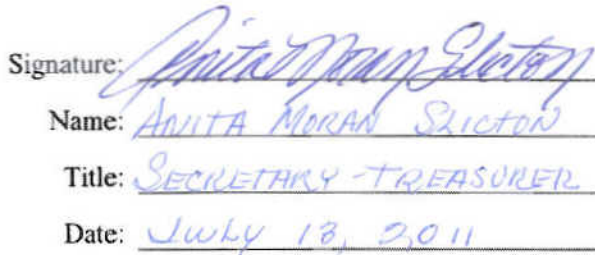 Signature: Anita Moran Slicton
Name: ANITA MORAN SLICTON
Title: SECRETARY-TREASURER
Date: JULY 13, 2011